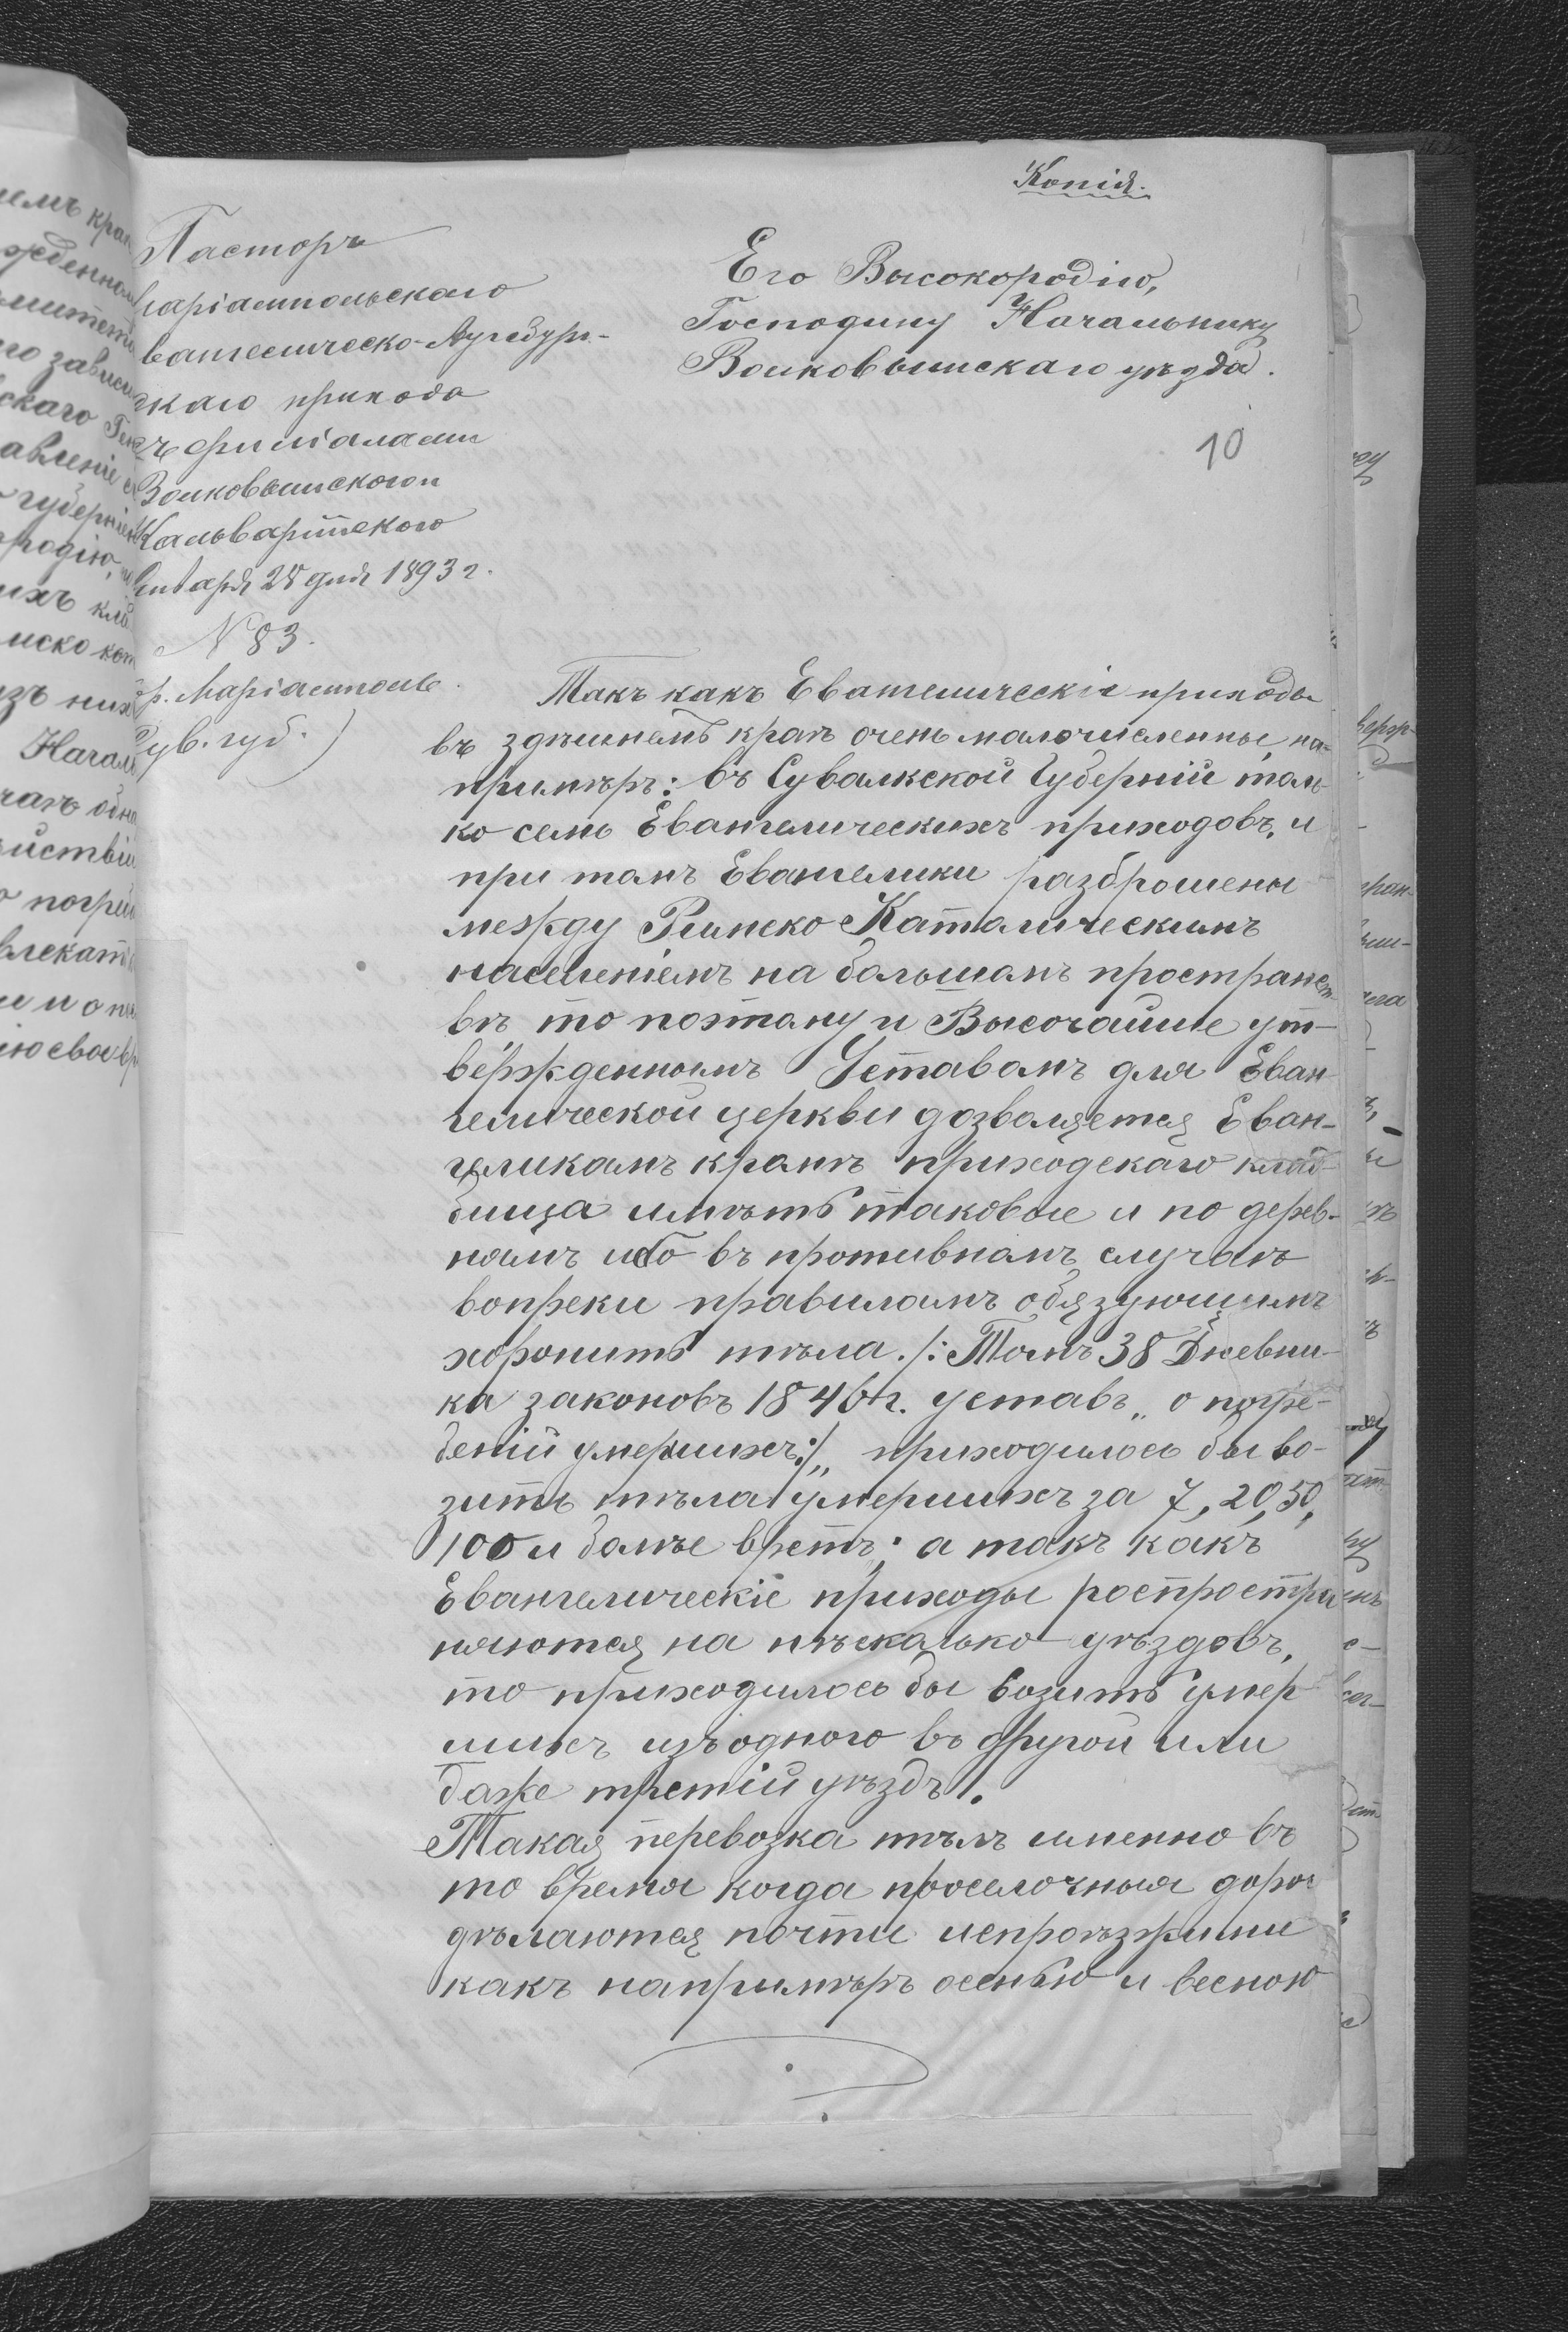 Копія.
Пасторъ
Маріампольскаго
Евангелическо-Аугсбург-
скаго прихода
съ филіалами
Волковышскаго и
Кальварійскаго
Января 28 дня 1893 г.
№ 83.
гр. Маріамполь
Сув. губ.
Его Высокородію,
Господину Начальнику
Волковышскаго уѣзда.
10
Такъ какъ Евангелическіе приходы
въ здѣшнемъ краѣ очень малочисленны, на-
примѣръ: въ Сувалкской Губерніи толь-
ко семь Евангелическихъ приходовъ, и
при томъ Евангелики разброшены
между Римско Католическимъ
населеніемъ на большомъ пространст-
вѣ то поэтому и Высочайше ут-
вержденнымъ Уставомъ для Еван
гелической церкви дозволяется Еван-
геликамъ кромѣ приходскаго клад-
бища имѣть таковые и по дерев-
нямъ ибо въ противномъ случаѣ
вопреки правиламъ обязующимъ
хоронить тѣла /: Томъ 38 Дневни-
ка законовъ 1846 г. уставъ „о погре-
беніи умершихъ:/„ приходилось бы во-
зить тѣла умершихъ за 7, 20, 50,
100 и болѣе верстъ; а такъ какъ
Евангелическіе приходы роспростра
няются на нѣсколько уѣздовъ,
то приходилось бы возить умер
шихъ изъ одного въ другой или
даже третій уѣздъ.
Такая перевозка тѣлъ именно въ
то время когда проселочныя дорог
дѣлаются почти непроѣзжими
какъ напримѣръ осенью и весною